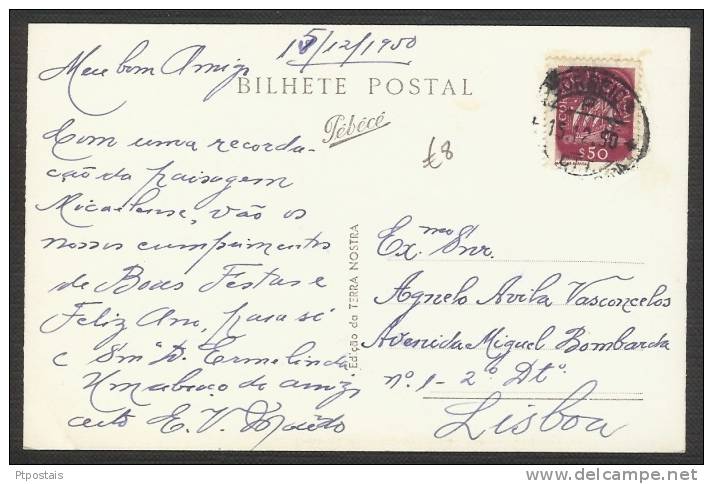 15/12/1950
Meu bom Amigo
BILHETE POSTAL
Pébécé
£8
Com uma recorda-
ção da paisagem
Micaelense, vão os
nossos cumprimentos
de Boas Festas e
Feliz Ano, para si
e Snrª D. Ermelinda
Um abraço do amigo
certo E. V.
Edição da TERRA NOSTRA
$50
Ex.mo Snr.
Agnelo Avila Vasconcelos
Avenida Miguel Bombarda
nº. 1 - 2º. Dtº.
Lisboa
Ptpostais
delcampe.net